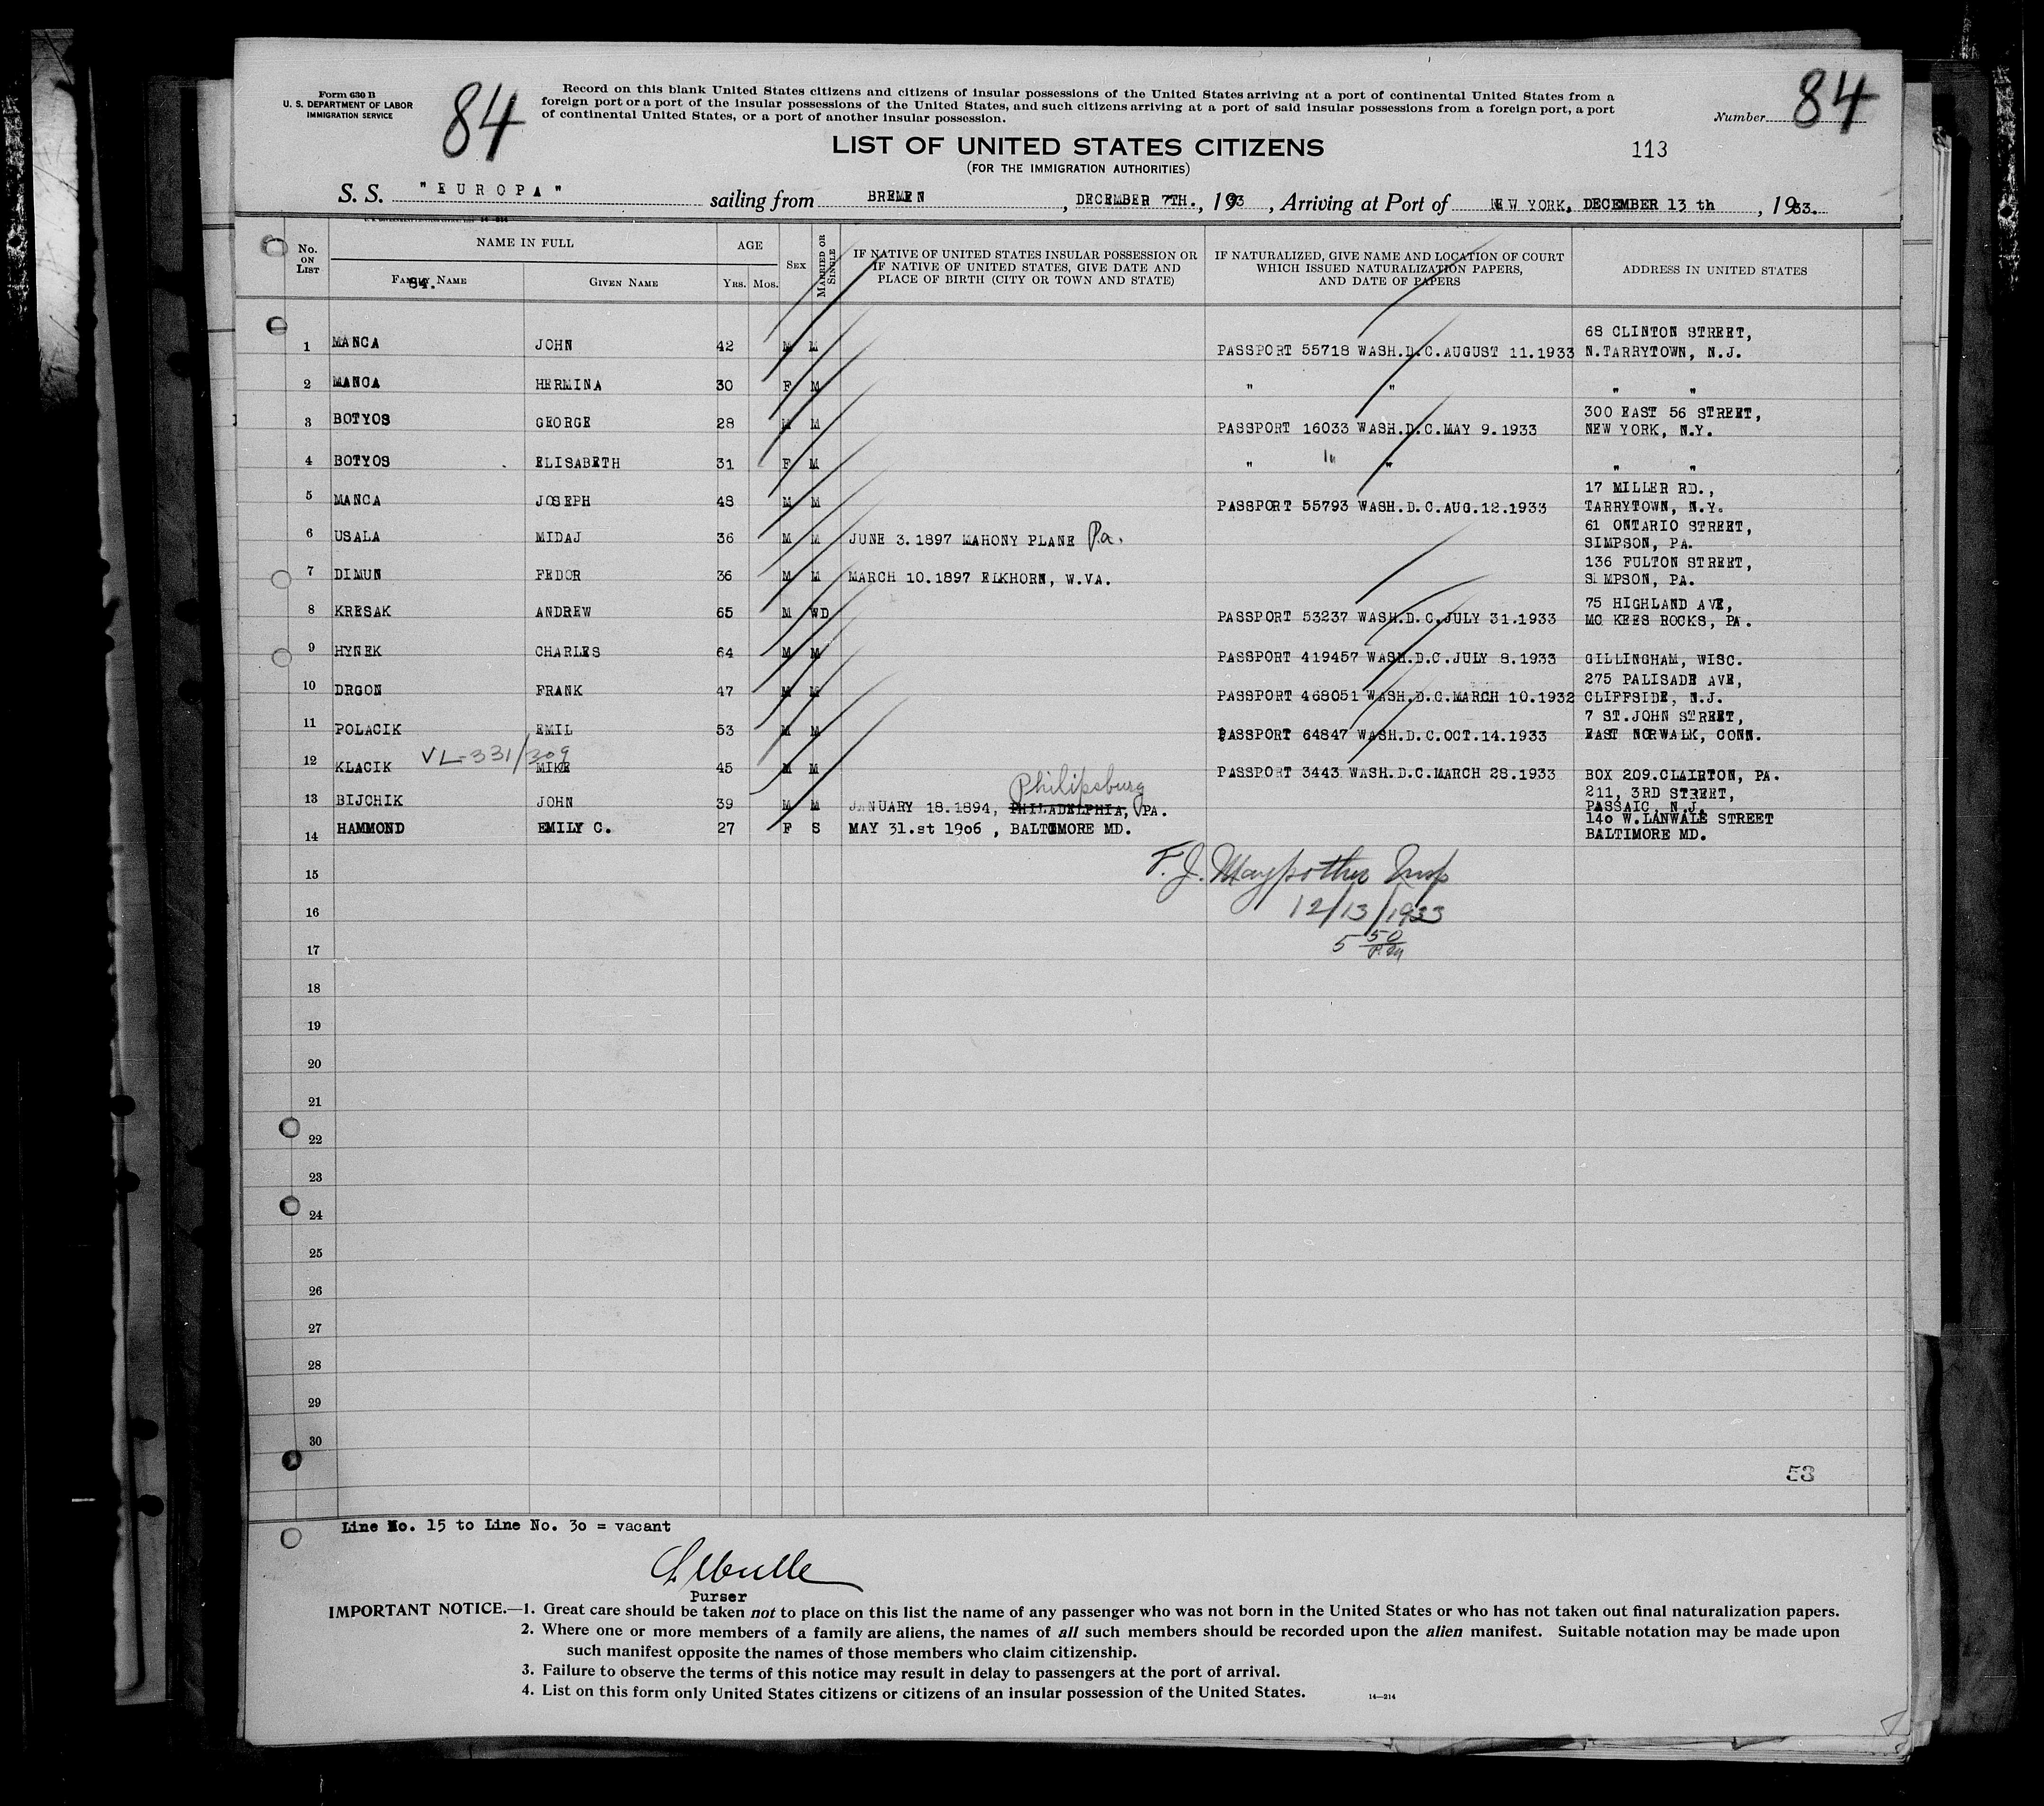 Form 630 B
U. S. DEPARTMENT OF LABOR
IMMIGRATION SERVICE
84
Record on this blank United States citizens and citizens of insular possessions of the United States arriving at a port of continental United States from a
foreign port or a port of the insular possessions of the United States, and such citizens arriving at a port of said insular possessions from a foreign port, a port
of continental United States, or a port of another insular possession.
Number 84
LIST OF UNITED STATES CITIZENS
(FOR THE IMMIGRATION AUTHORITIES)
113
S. S. "EUROPA" sailing from BREMEN, DECEMBER 7TH., 1933, Arriving at Port of NEW YORK, DECEMBER 13 th, 1933.
No. ON LIST
NAME IN FULL
FAMILY NAME
84.
GIVEN NAME
AGE
YRS. MOS.
SEX
MARRIED OR SINGLE
IF NATIVE OF UNITED STATES INSULAR POSSESSION OR
IF NATIVE OF UNITED STATES, GIVE DATE AND
PLACE OF BIRTH (CITY OR TOWN AND STATE)
IF NATURALIZED, GIVE NAME AND LOCATION OF COURT
WHICH ISSUED NATURALIZATION PAPERS,
AND DATE OF PAPERS
ADDRESS IN UNITED STATES
1 MANCA JOHN 42 M M PASSPORT 55718 WASH.D.C.AUGUST 11.1933 68 CLINTON STREET,
N.TARRYTOWN, N.J.
2 MANCA HERMINA 30 F M " " " "
3 BOTYOS GEORGE 28 M M PASSPORT 16033 WASH.D.C.MAY 9.1933 300 EAST 56 STREET,
NEW YORK, N.Y.
4 BOTYOS ELISABETH 31 F M " " " "
5 MANCA JOSEPH 48 M M PASSPORT 55793 WASH.D.C.AUG.12.1933 17 MILLER RD.,
TARRYTOWN, N.Y.
6 USALA MIDAJ 36 M M JUNE 3.1897 MAHONY PLANE Pa. 61 ONTARIO STREET,
SIMPSON, PA.
7 DIMUN FEDOR 36 M M MARCH 10.1897 ELKHORN, W.VA. 136 FULTON STREET,
SIMPSON, PA.
8 KRESAK ANDREW 65 M WD PASSPORT 53237 WASH.D.C.JULY 31.1933 75 HIGHLAND AVE,
MC KEES ROCKS, PA.
9 HYNEK CHARLES 64 M M PASSPORT 419457 WASH.D.C.JULY 8.1933 GILLINGHAM, WISC.
10 DRGON FRANK 47 M M PASSPORT 468051 WASH.D.C.MARCH 10.1932 275 PALISADE AVE,
CLIFFSIDE, N.J.
11 POLACIK EMIL 53 M M PASSPORT 64847 WASH.D.C.OCT.14.1933 7 ST.JOHN STREET,
EAST NORWALK, CONN.
VL-331/309
12 KLACIK MIKE 45 M M PASSPORT 3443 WASH.D.C.MARCH 28.1933 BOX 209.CLAIRTON, PA.
Philipsburg
13 BIJCHIK JOHN 39 M M JANUARY 18.1894, PHILADELPHIA, PA. 211, 3RD STREET,
PASSAIC, N.J.
14 HAMMOND EMILY C. 27 F S MAY 31.st 1906 , BALTIMORE MD. 140 W.LANWALE STREET
BALTIMORE MD.
15
F. J. Maypother Insp
16
12/13/1933
17
5 50
18
19
20
21
22
23
24
25
26
27
28
29
30
53
Line No. 15 to Line No. 30 = vacant
Purser
IMPORTANT NOTICE.—1. Great care should be taken not to place on this list the name of any passenger who was not born in the United States or who has not taken out final naturalization papers.
2. Where one or more members of a family are aliens, the names of all such members should be recorded upon the alien manifest. Suitable notation may be made upon
such manifest opposite the names of those members who claim citizenship.
3. Failure to observe the terms of this notice may result in delay to passengers at the port of arrival.
4. List on this form only United States citizens or citizens of an insular possession of the United States.
14—214